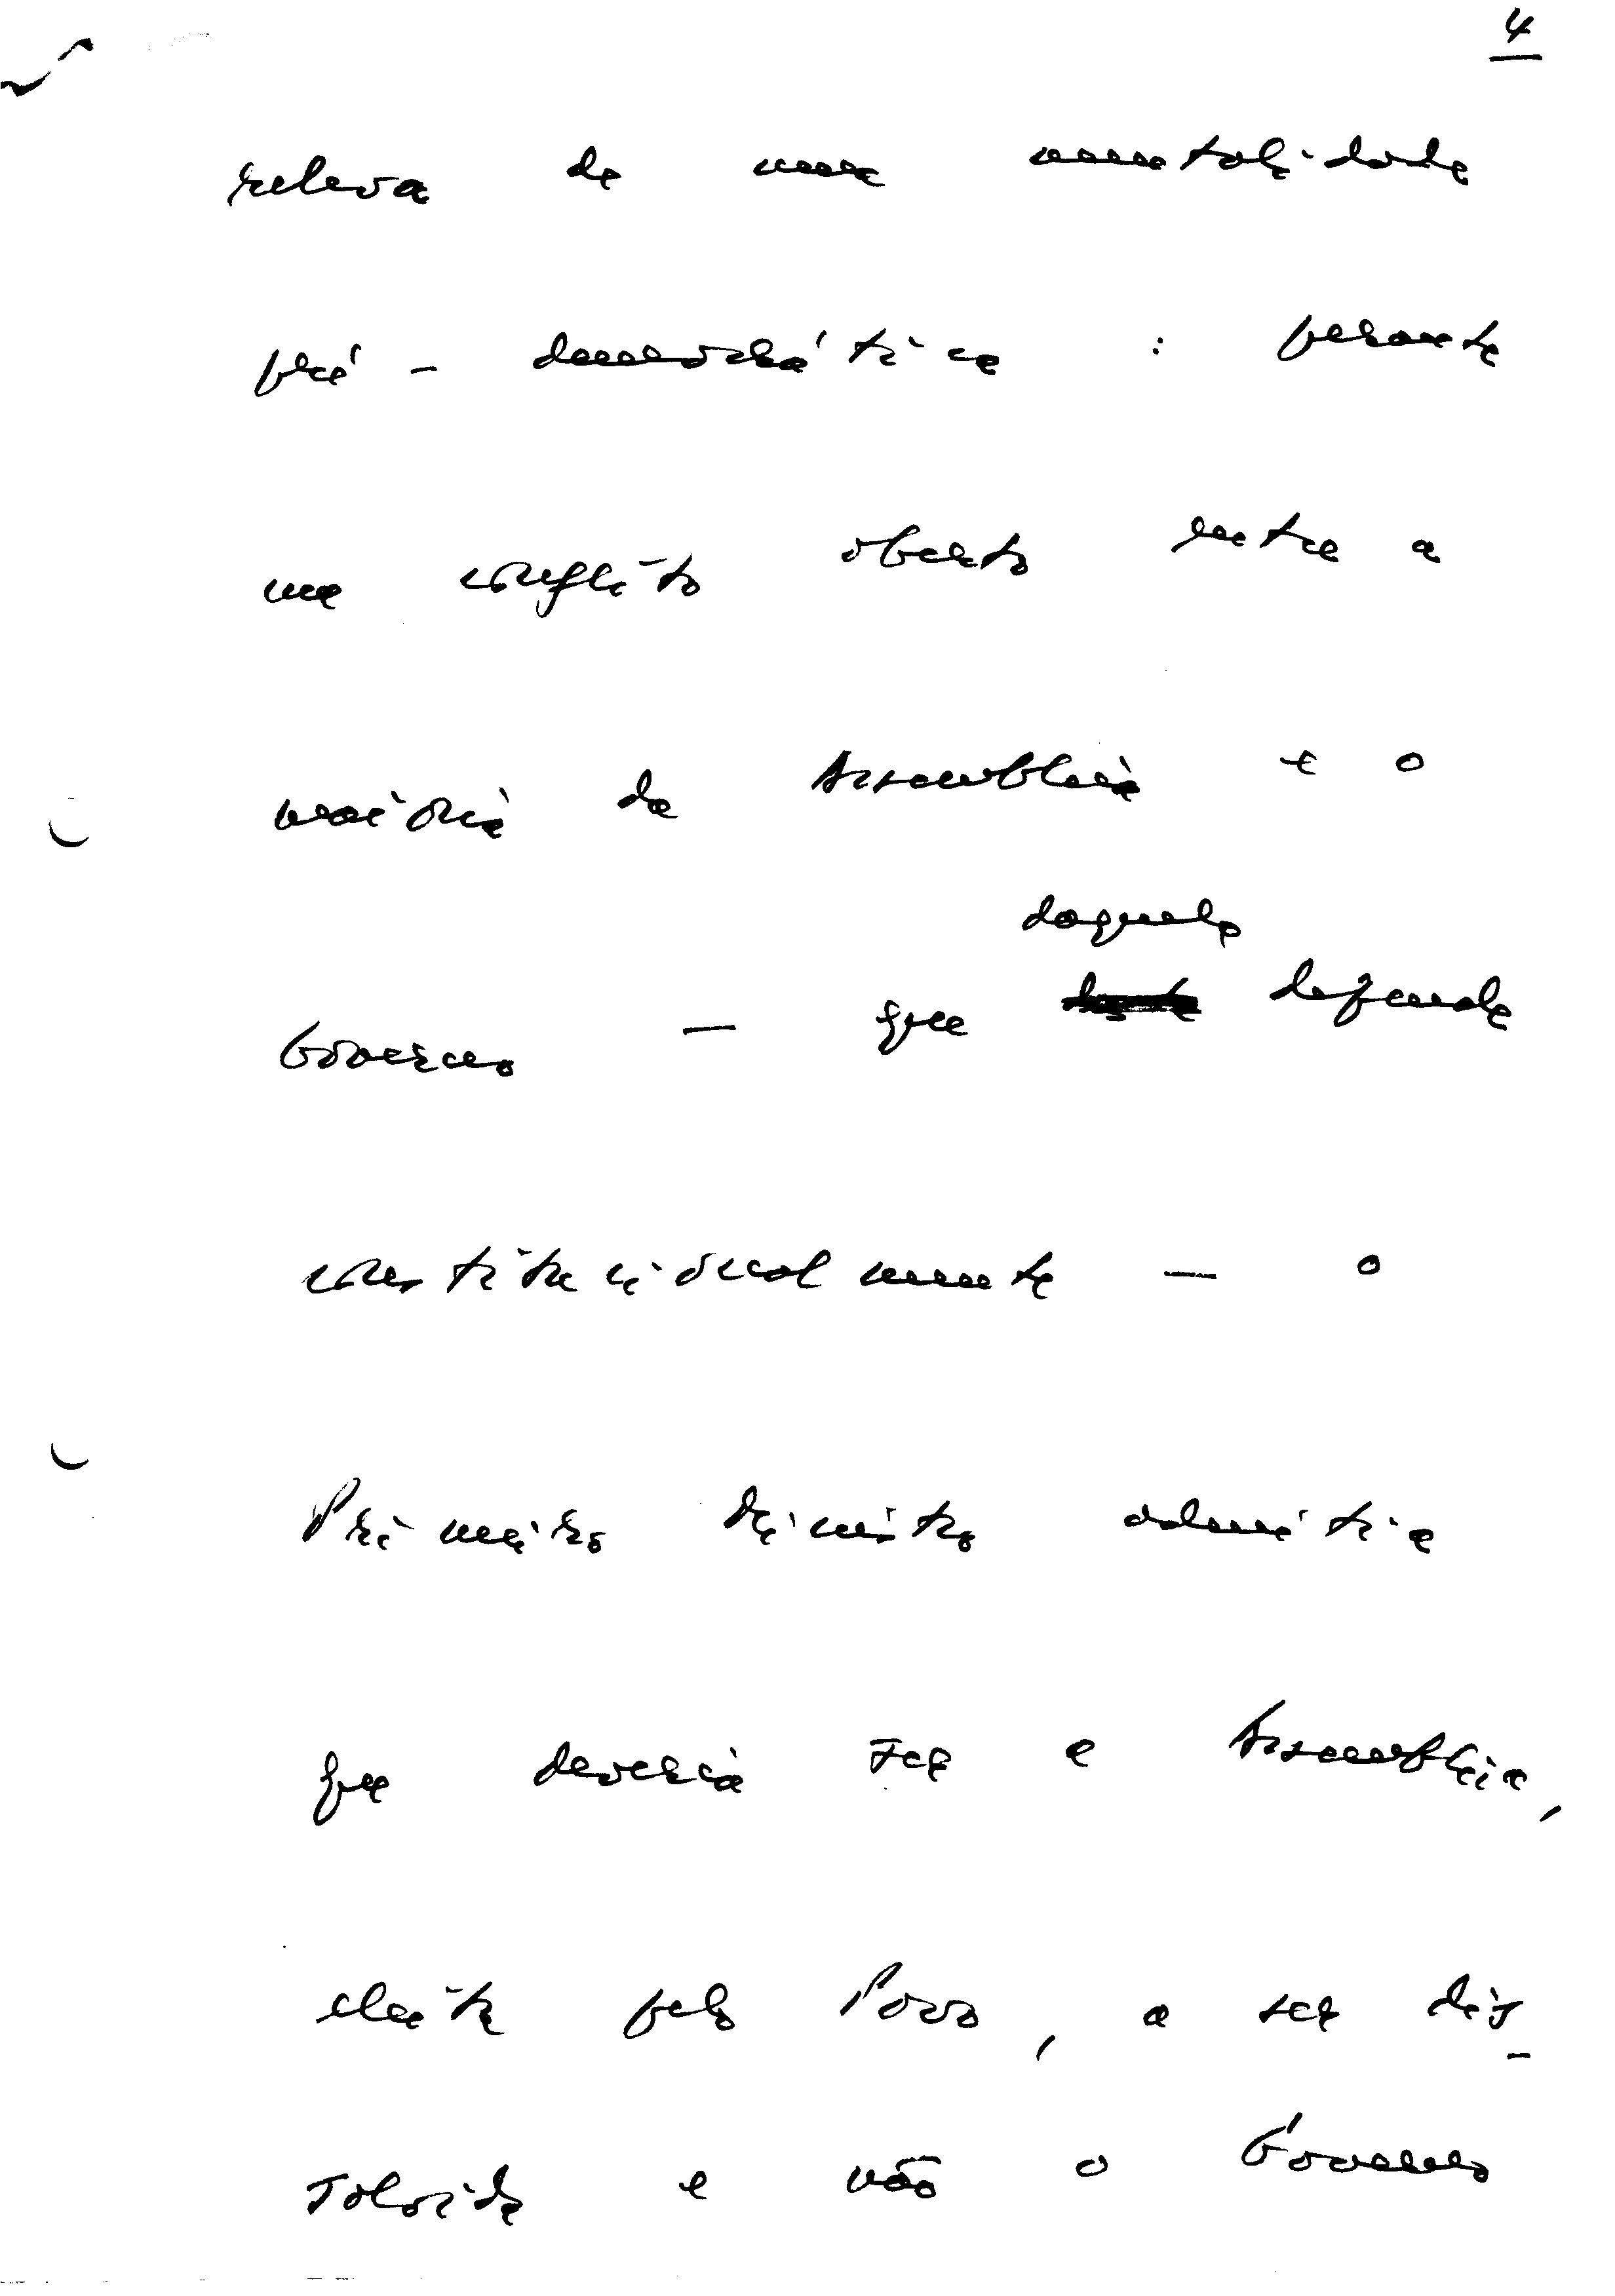 4
releva de uma mentalidade
pré-democrática : perante
um conflito aberto entre a
maioria da Assembleia e o
daquela
Governo — que depende
constitucionalmente — o
Primeiro Ministro admitia
que deveria ser a Assembleia,
eleita pelo Povo, a ser dis-
solvida e não o Governo